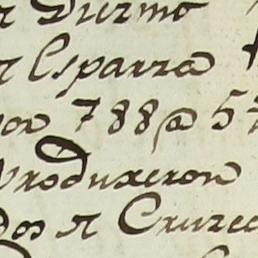 Diezmo
Esparza
por 788@ 5
Produxeron
dos Cruzed